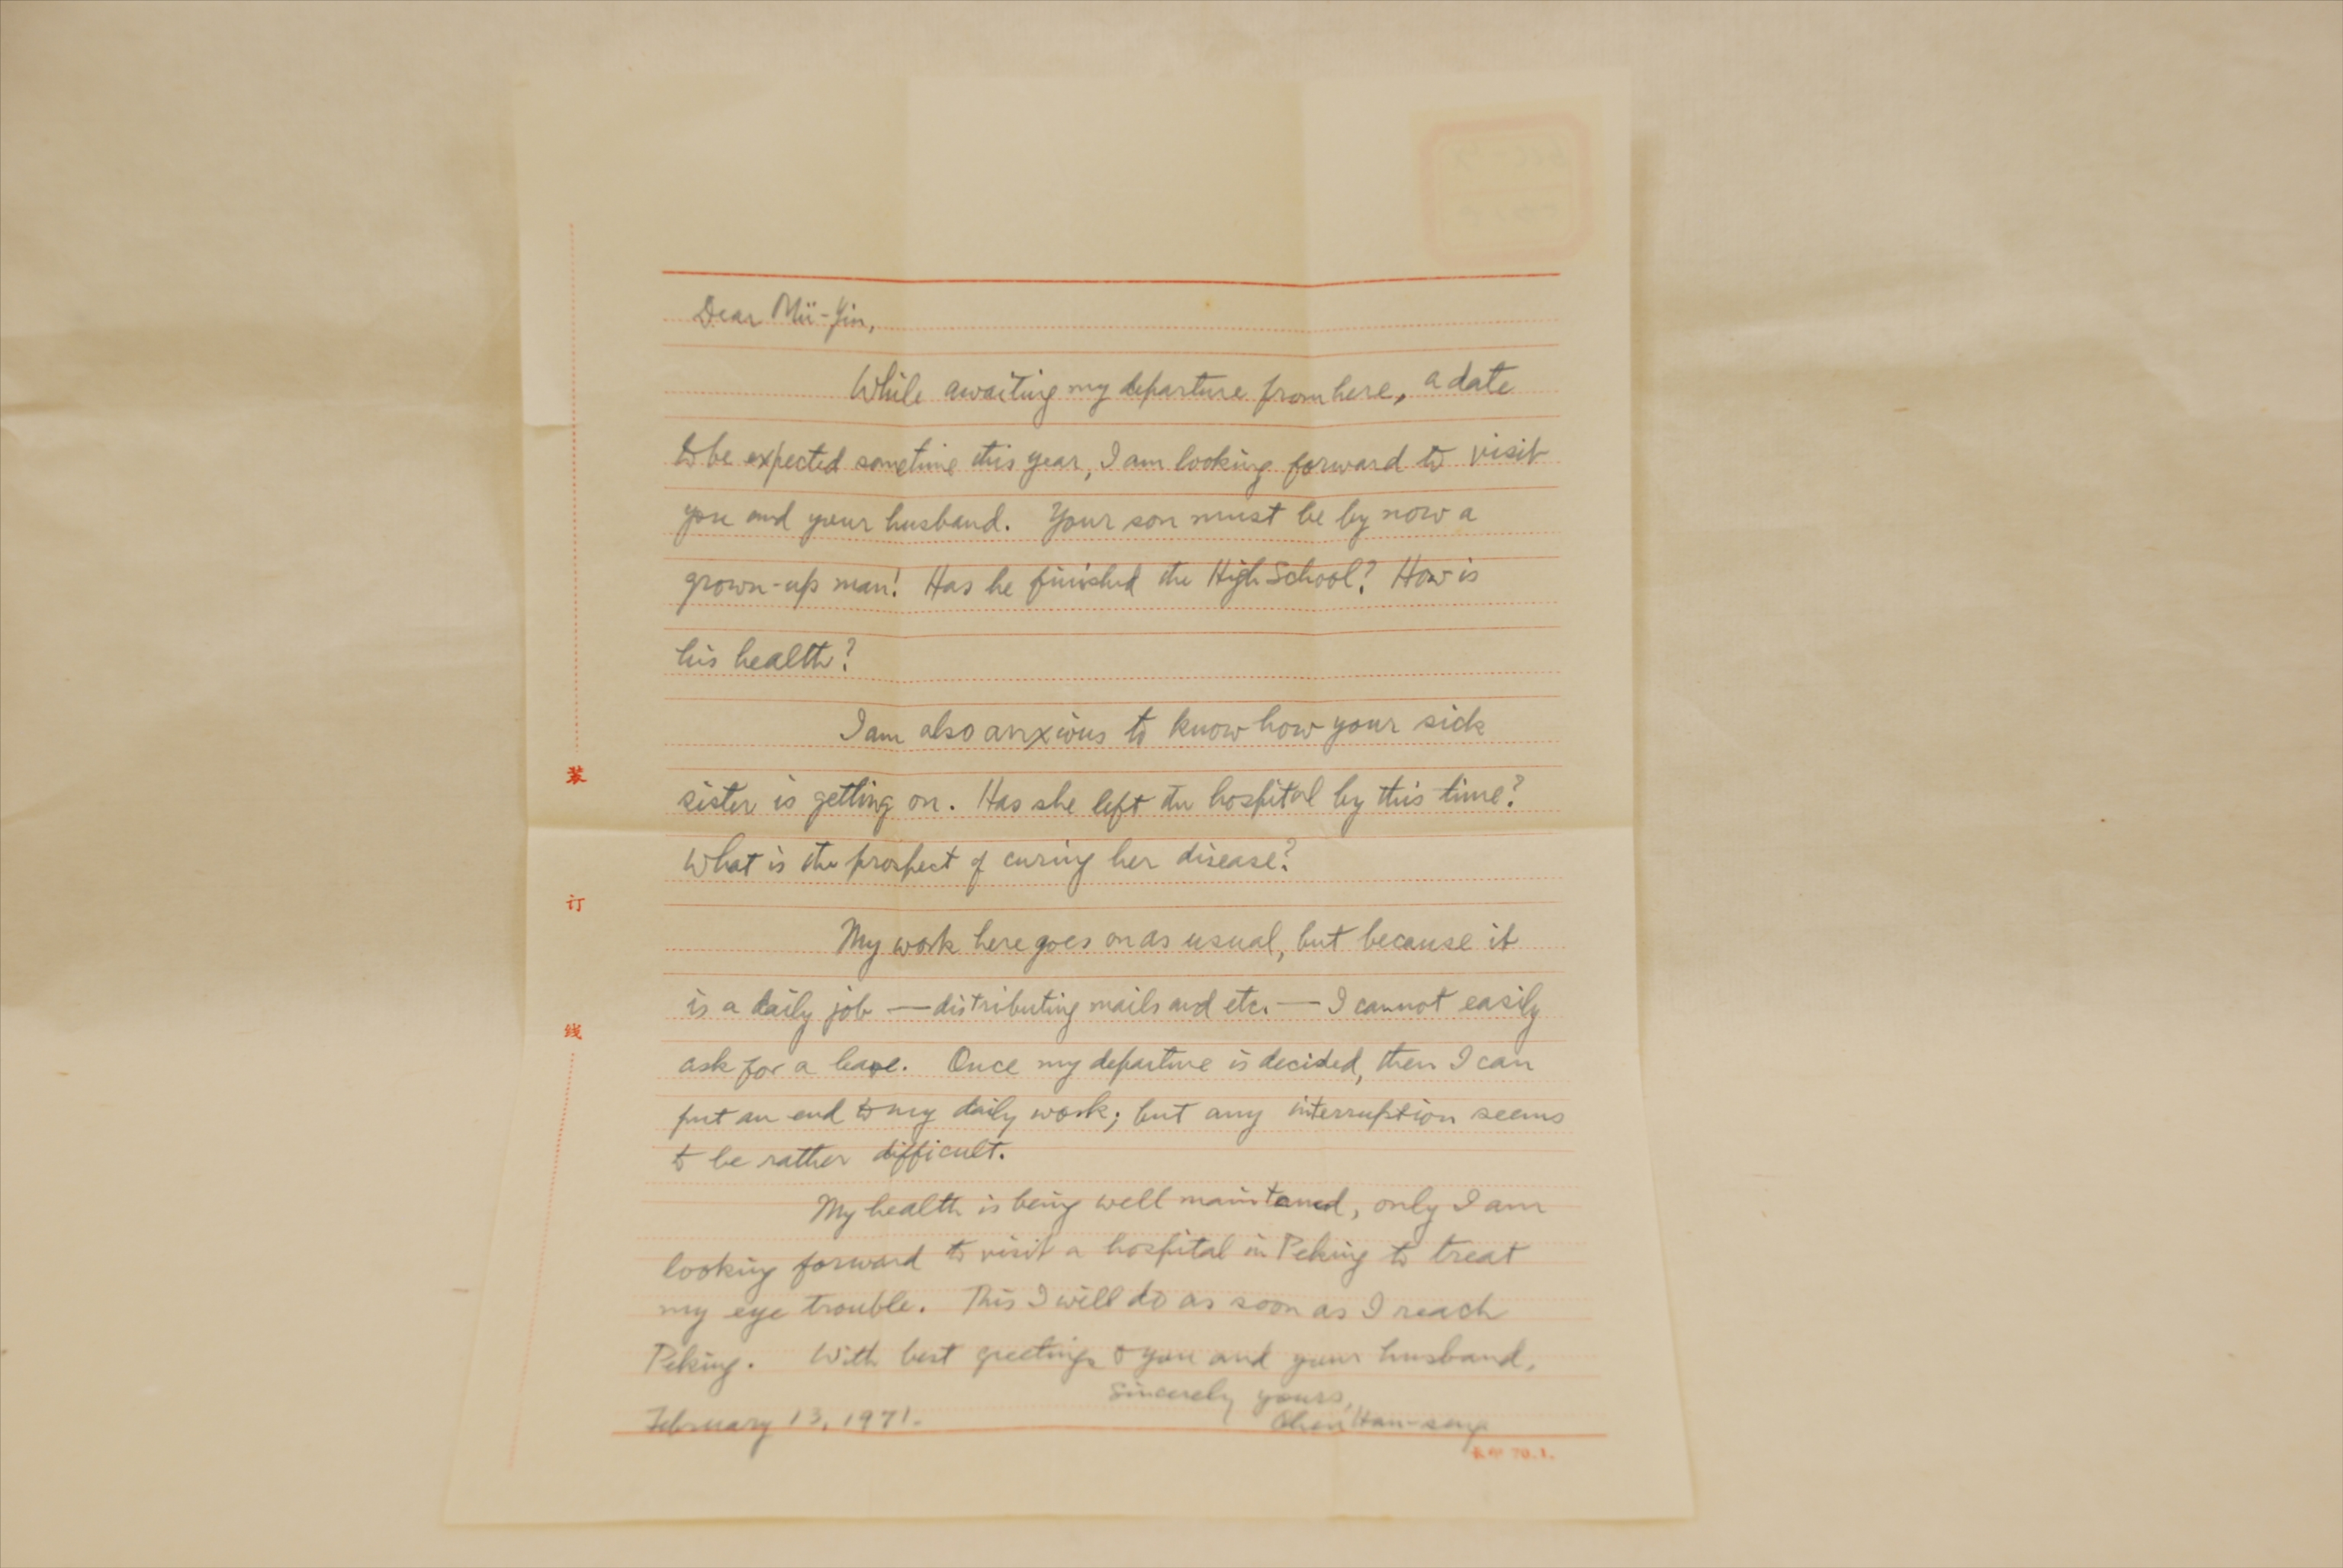 Dear Mü-Yin,
While awaiting my departure from here, a date
to be expected sometime this year, I am looking forward to visit
you and your husband. Your son must be by now a
grown-up man! Has he finished the High School? How is
his health?
I am also anxious to know how your sick
sister is getting on. Has she left the hospital by this time?
What is the prospect of curing her disease?
My work here goes on as usual, but because it
is a daily job — distributing mails and etc. — I cannot easily
ask for a leave. Once my departure is decided, then I can
put an end to my daily work; but any interruption seems
to be rather difficult.
My health is being well maintained, only I am
looking forward to visit a hospital in Peking to treat
my eye trouble. This I will do as soon as I reach
Peking. With best greetings to you and your husband,
Sincerely yours,
February 13, 1971. Chen Han-seng
装
订
线
70.1.